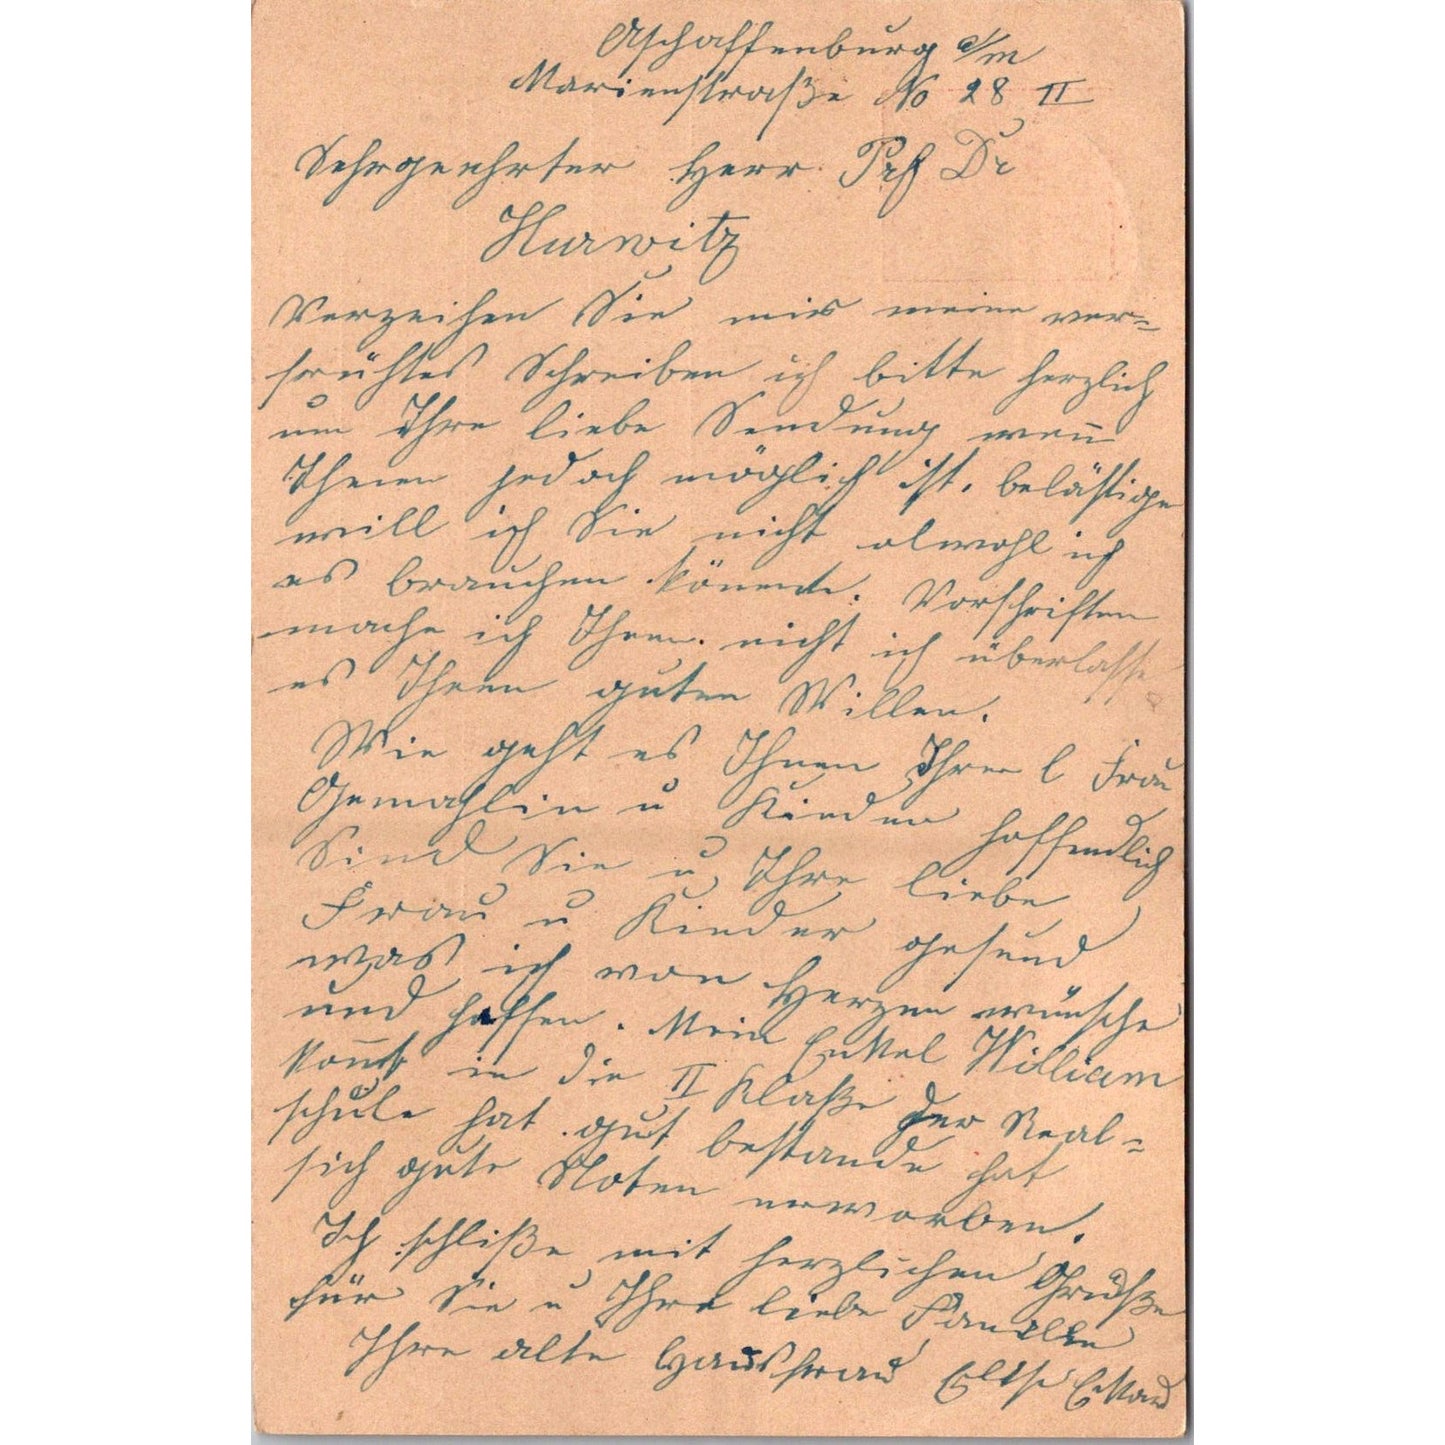 Aschaffenburg a/m
Marienstraße No 28 II
Sehrgeehrter Herr Prf Dr
Hurwitz
Verzeihen Sie mir meine ver=
frühtes Schreiben ich bitte herzlich
um Ihre liebe Sendung wenn
Ihnen jedoch möglich ist. belästige
will ich Sie nicht olwohl ich
es brauchen könnte. Vorschriften
mache ich Ihnen. nicht ich überlasse
es Ihren guten Willen.
Wie geht es Ihnen Ihrer l Frau
Gemahlin u Kinder hoffendlich
Sind Sie u Ihre liebe
Frau u Kinder gesund
was ich von Herzen wünsche
und hoffen. Mein Enkel William
kommt in die II Klaße der Real=
schule hat gut bestande hat
sich gute Noten erworben.
Ich schliße mit herzlichen Grüße
für Sie u Ihre liebe Familie
Ihre alte Hausfrau